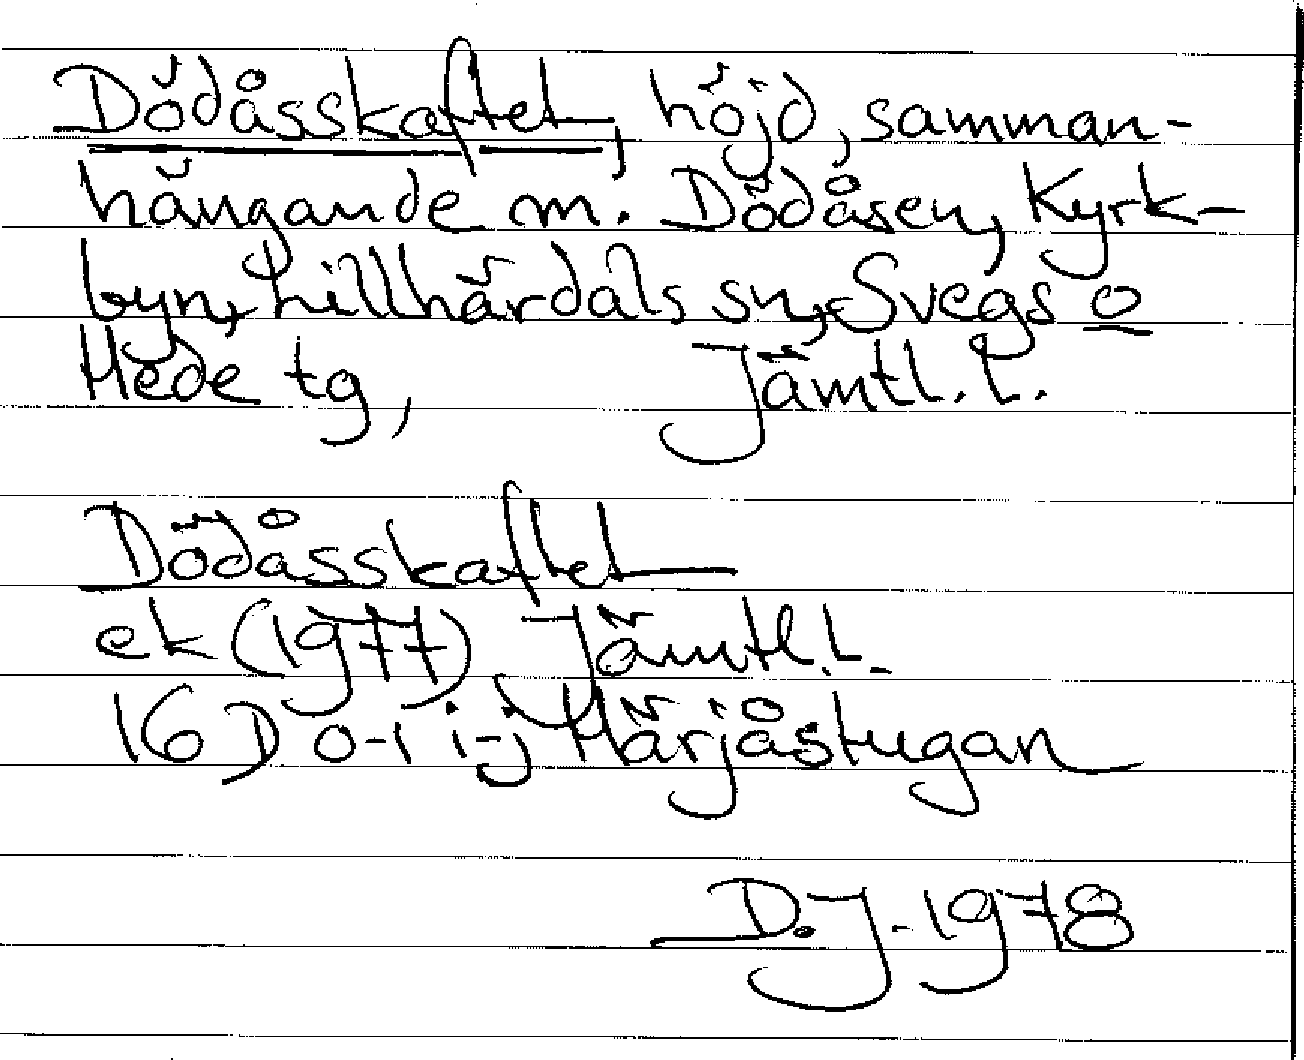 Dödåsskaftet, höjd, samman-
hängande m. Dödåsen, Kyrk-
byn, Lillhärdals sn, Svegs o
Hede tg, Jämtl. l.
Dödåsskaftet
ek (1977) Jämtl. l.
16 D 0-1 i-j Härjåstugan
D.J. 1978